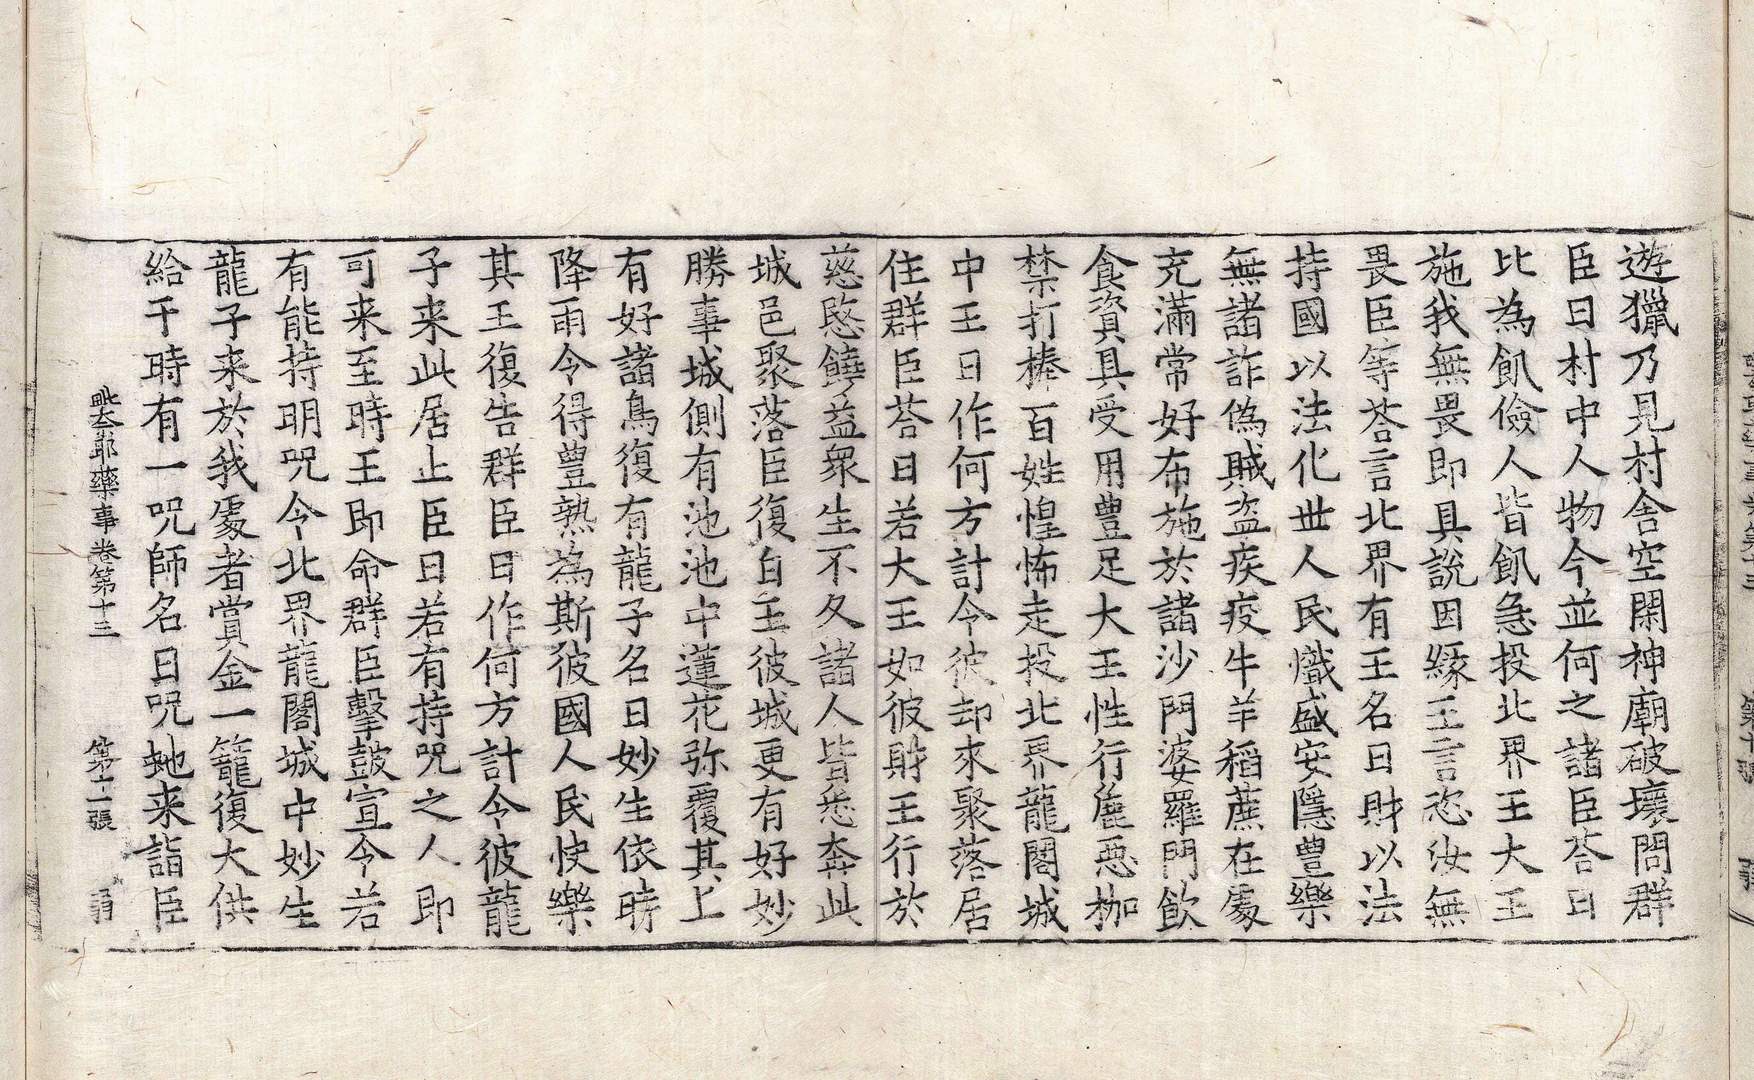 遊獵乃見村舍空閑神廟破壞問群
臣曰村中人物今並何之諸臣荅曰
比為飢儉人皆飢急投北界王大王
施我無畏即具說因緣王言恣汝無
畏臣等荅言北界有王名曰財以法
持國以法化世人民熾盛安隱豊樂
無諸詐偽賊盜疾疫牛羊稻蔗在處
充滿常好布施於諸沙門婆羅門飲
食資具受用豊足大王性行麁惡枷
禁打棒百姓惶怖走投北界龍閣城
中王曰作何方計令彼却來聚落居
住群臣荅曰若大王如彼財王行於
慈愍饒益衆生不久諸人皆悉奔此
城邑聚落臣復白王彼城更有好妙
勝事城側有池池中蓮花弥覆其上
有好諸鳥復有龍子名曰妙生依時
降雨令得豊熟為斯彼國人民快樂
其王復告群臣曰作何方計令彼龍
子来此居止臣曰若有持呪之人即
可来至時王即命群臣擊鼓宣令若
有能持明呪令北界龍閣城中妙生
龍子来於我處者賞金一籠復大供
給于時有一呪師名曰呪虵来詣臣
毗奈耶藥事卷第十三 第十一張